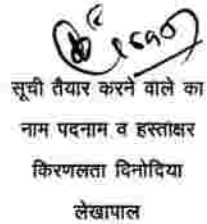 सूची तैयार करने वाले का
नाम पदनाम व हस्ताक्षर
किरणलता दिनोदिया
लेखापाल